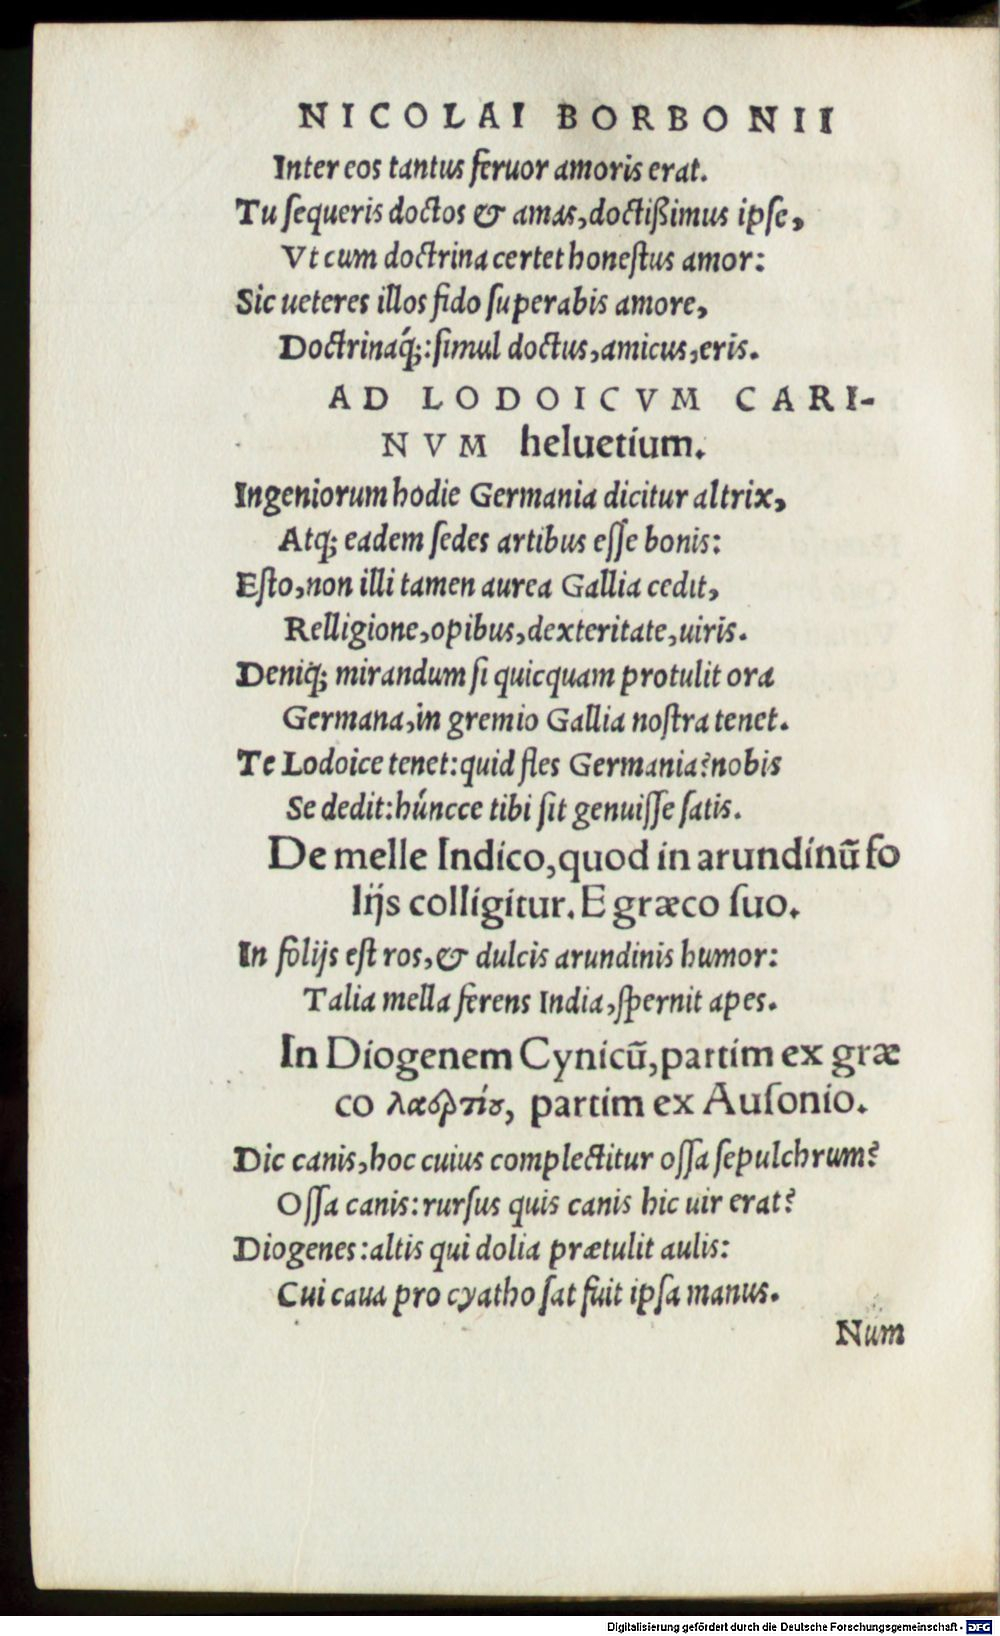 NICOLAI BORBONII
Inter eos tantus feruor amoris erat.
Tu ſequeris doctos & amas, doctißimus ipſe,
Vt cum doctrina certet honeſtus amor:
Sic ueteres illos fido ſuperabis amore,
Doctrinaq́;: ſimul doctus, amicus, eris.
AD LODOICVM CARI-
NVM heluetium.
Ingeniorum hodie Germania dicitur altrix,
Atq; eadem ſedes artibus eſſe bonis:
Eſto, non illi tamen aurea Gallia cedit,
Relligione, opibus, dexteritate, uiris.
Deniq; mirandum ſi quicquam protulit ora
Germana, in gremio Gallia noſtra tenet.
Te Lodoice tenet: quid fles Germania? nobis
Se dedit: húncce tibi ſit genuiſſe ſatis.
De melle Indico, quod in arundinũ fo
lijs colligitur. E græco ſuo.
In folijs eſt ros, & dulcis arundinis humor:
Talia mella ferens India, ſpernit apes.
In Diogenem Cynicũ, partim ex græ
co λαερτίου, partim ex Auſonio.
Dic canis, hoc cuius complectitur oſſa ſepulchrum?
Oſſa canis: rurſus quis canis hic uir erat?
Diogenes: altis qui dolia prætulit aulis:
Cui caua pro cyatho ſat fuit ipſa manus.
Num
Digitalisierung gefördert durch die Deutsche Forschungsgemeinschaft - DFG